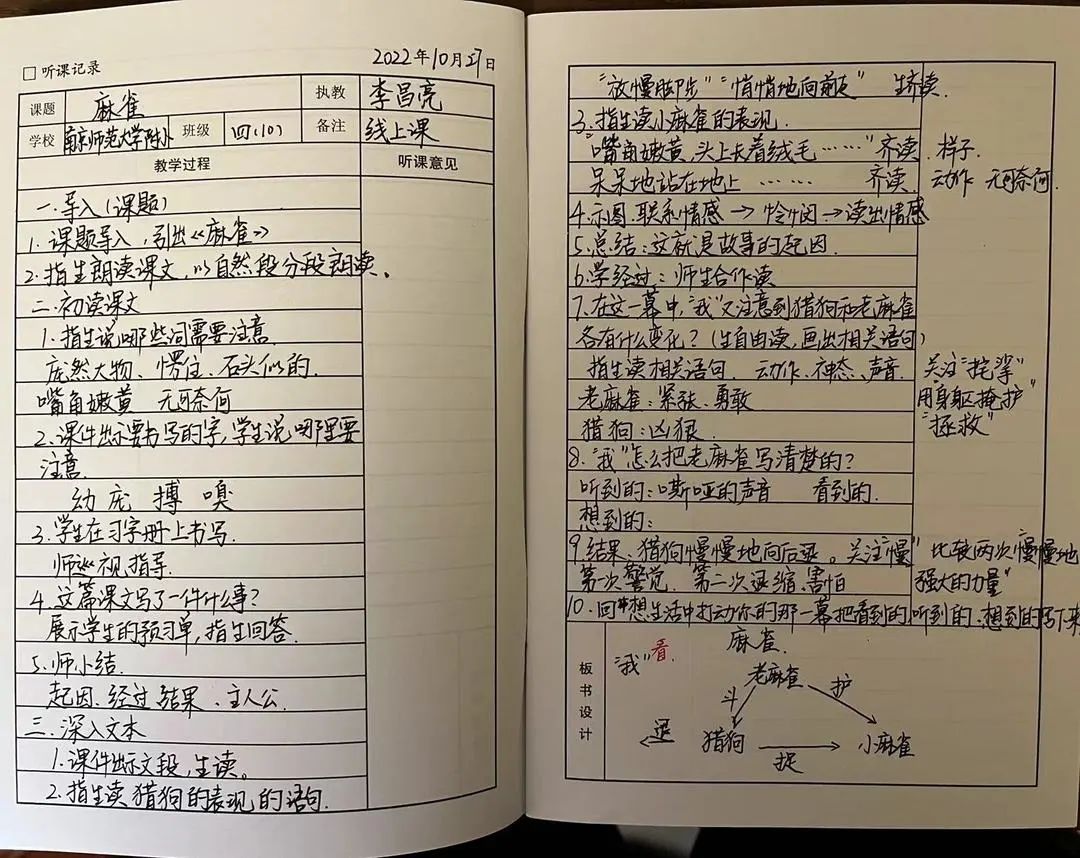 □ 听课记录 2022年10月27日
课题 麻雀 执教 李昌亮
学校 南京师范大学附小 班级 四(10) 备注 线上课
教学过程 听课意见
一.导入(课题)
1.课题导入,引出《麻雀》
2.指生朗读课文,以自然段分段朗读。
二.初读课文
1.指生说哪些词需要注意.
庞然大物、愣住、石头似的.
嘴角嫩黄 无可奈何
2.课件出示要书写的字,学生说哪里要
注意.
幼 庞 搏 嗅
3.学生在习字册上书写.
师巡视,指导.
4.这篇课文写了一件什么事?
展示学生的预习单,指生回答.
5.师小结.
起因、经过、结果、主人公.
三.深入文本
1.课件出示文段,生读。
2.指生读猎狗的表现的语句.
"放慢脚步" "悄悄地向前走" 生齐读.
3.指生读小麻雀的表现.
"嘴角嫩黄,头上长着绒毛……"齐读. 样子.
呆呆地站在地上 …… 齐读. 动作 无可奈何.
4.示图.联系情感→怜悯→读出情感
5.总结:这就是故事的起因.
6.学经过:师生合作读
7.在这一幕中,"我"又注意到猎狗和老麻雀
各有什么变化?(生自由读,画出相关语句)
指生读相关语句. 动作、神态、声音. 关注"挓挲"
老麻雀:紧张、勇敢 用身躯掩护"
猎狗:凶狠. "拯救"
8."我"怎么把老麻雀写清楚的?
听到的:嘶哑的声音 看到的.
想到的:
9.结果:猎狗慢慢地向后退。关注"慢" 比较两次"慢慢地
第一次警觉.第二次退缩.害怕 强大的力量"
10.回想生活中打动你的那一幕把看到的,听到的、想到的写下来
板书设计
麻雀.
"我" 看.
老麻雀
斗 护
退 猎狗 小麻雀
捉